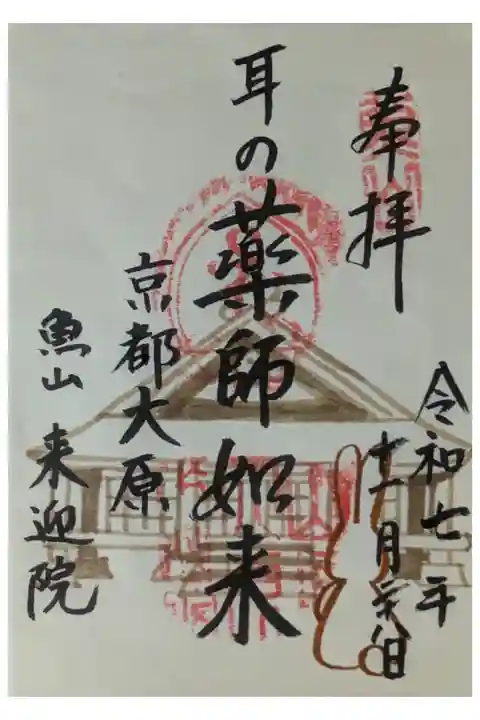 奉拝
令和七年
十一月二十八日
耳の薬師如来
京都大原
魚山 来迎院